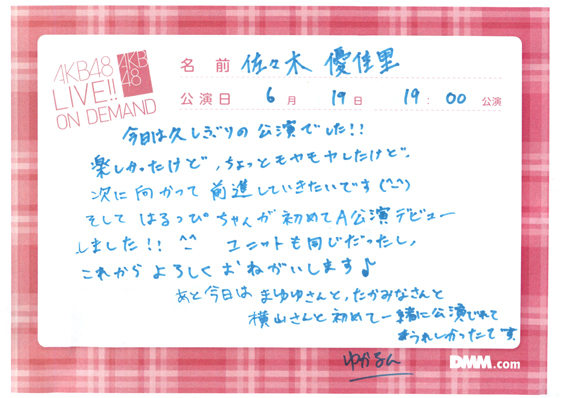 AKB48
LIVE!!
ON DEMAND
AKB
48
名 前 佐々木 優佳里
公演日 6 月 19 日 19: 00 公演
今日は久しぶりの公演でした!!
楽しかったけど、ちょっとモヤモヤしたけど、
次に向かって前進していきたいです(^-^)
そしてはるっぴちゃんが初めてA公演デビュー
しました!! ^^ ユニットも同じだったし、
これからよろしくおねがいします♪
あと今日は まゆゆさんと、たかみなさんと
横山さんと初めて一緒に公演でれて
うれしかったです。
ゆかるん
DMM.com